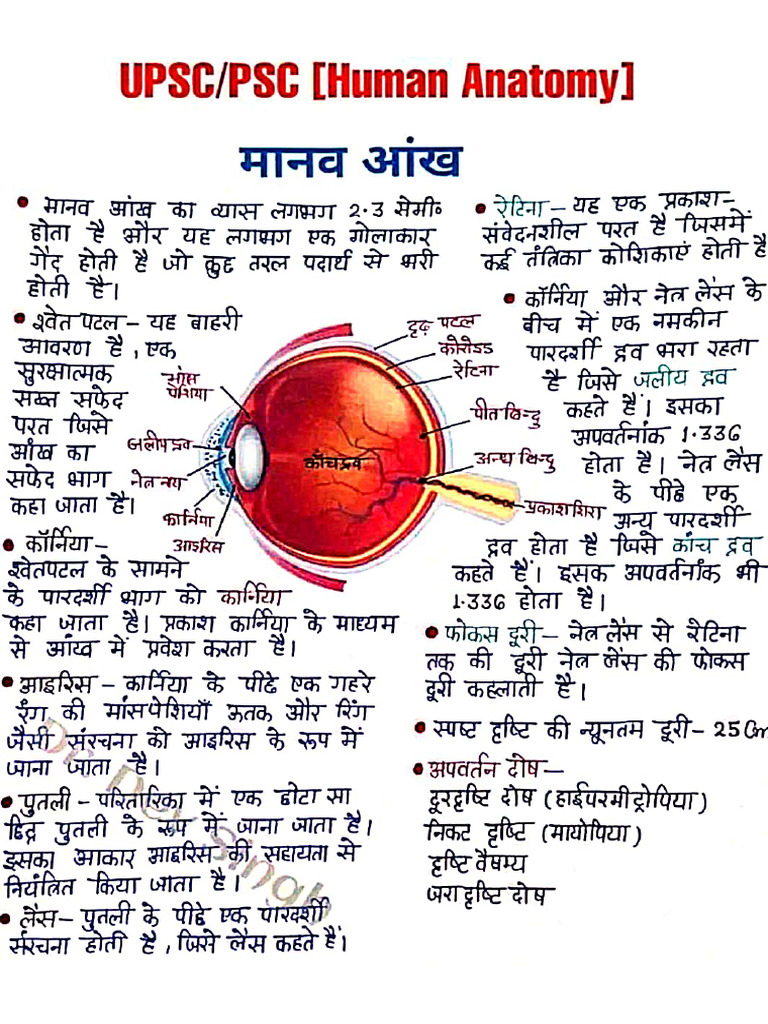 UPSC/PSC [Human Anatomy]
मानव आंख
• मानव आंख का व्यास लगभग 2.3 सेमी०
होता है और यह लगभग एक गोलाकार
गेंद होती है जो कुछ तरल पदार्थ से भरी
होती है।
• श्वेत पटल – यह बाहरी
आवरण है, एक
सुरक्षात्मक
सख्त सफेद
परत जिसे
आंख का
सफेद भाग
कहा जाता है।
• कॉर्निया –
श्वेतपटल के सामने
के पारदर्शी भाग को कार्निया
कहा जाता है। प्रकाश कार्निया के माध्यम
से आंख में प्रवेश करता है।
• आइरिस – कार्निया के पीछे एक गहरे
रंग की मांसपेशियाँ ऊतक और रिंग
जैसी संरचना को आइरिस के रूप में
जाना जाता है।
• पुतली – परितारिका में एक छोटा सा
छिद्र पुतली के रूप में जाना जाता है।
इसका आकार आइरिस की सहायता से
नियंत्रित किया जाता है।
• लेंस – पुतली के पीछे एक पारदर्शी
संरचना होती है, जिसे लेंस कहते हैं।
दृढ़ पटल
कोरोइड
रेटिना
मांस
पेशिया
पीत बिन्दु
जलीय द्रव
काँच द्रव
अन्ध बिन्दु
कार्निया
प्रकाश शिरा
आइरिस
• रेटिना – यह एक प्रकाश-
संवेदनशील परत है जिसमें
कई तंत्रिका कोशिकाएं होती है
• कॉर्निया और नेत्र लेंस के
बीच में एक नमकीन
पारदर्शी द्रव भरा रहता
है जिसे जलीय द्रव
कहते हैं। इसका
अपवर्तनांक 1.336
होता है। नेत्र लेंस
के पीछे एक
अन्य पारदर्शी
द्रव होता है जिसे कांच द्रव
कहते हैं। इसक अपवर्तनांक भी
1.336 होता है।
• फोकस दूरी – नेत्र लेंस से रेटिना
तक की दूरी नेत्र लेंस की फोकस
दूरी कहलाती है।
• स्पष्ट दृष्टि की न्यूनतम दूरी – 25 Cm
• अपवर्तन दोष –
दूरदृष्टि दोष (हाईपरमीट्रोपिया)
निकट दृष्टि (मायोपिया)
दृष्टि वैषम्य
जरा दृष्टि दोष
Dr. Dev Singh